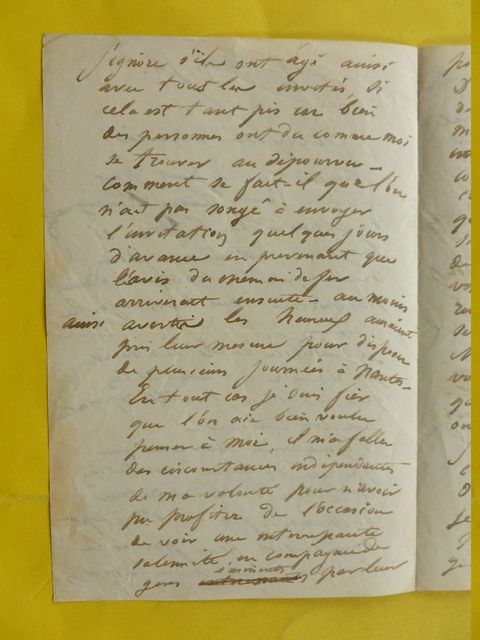 J'ignore s'ils ont agi ainsi
avec tous les invités, si
cela est tant pis car bien
des personnes ont du comme moi
se trouver au dépourvu –
comment se fait-il que l'on
n'ait pas songé à envoyer
l'invitation quelques jours
d'avance en prevenant que
l'avis du chemin de fer
arriverait ensuite – au moins
ainsi avertis les heureux auraient
pris leur mesure pour disposer
de plusieurs journées à Nantes –
En tout cas je suis fier
que l'on aie bien voulu
penser à moi, il m'a fallu
des circonstances indépendantes
de ma volonté pour n'avoir
pu profiter de l'occasion
de voir une
solennité, en compagnie de
gens éminents par leur